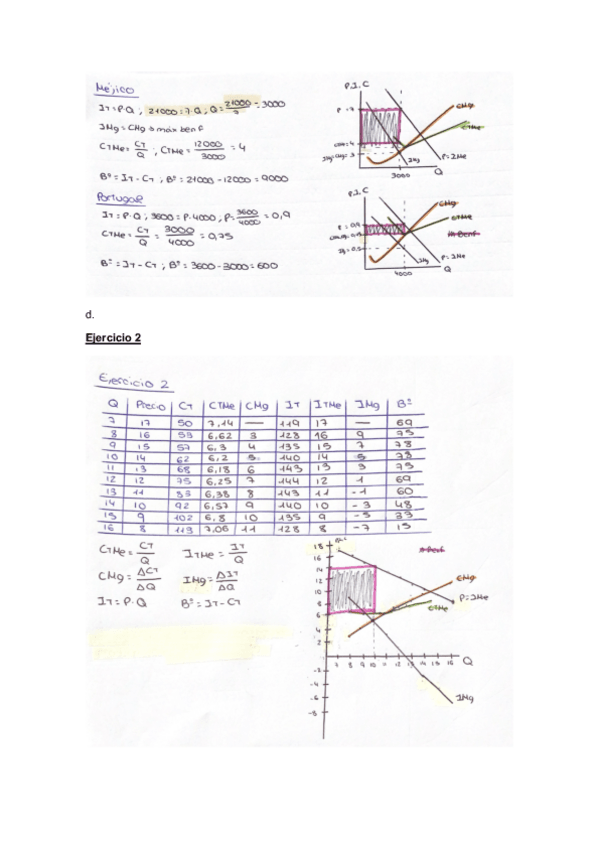 Méjico
IT=P·Q ; 21000=7·Q ; Q=21000/7=3000
IMg=CMg → máx benf
CTMe=CT/Q ; CTMe=12000/3000=4
Bº=IT-CT ; Bº=21000-12000=9000
P, I, C
P=7
CMg
CTMe
IMg
P=IMe
3000
Q
Portugal
IT=P·Q ; 3600=P·4000 ; P=3600/4000=0,9
CTMe=CT/Q=3000/4000=0,75
Bº=IT-CT ; Bº=3600-3000=600
P, I, C
P=0,9
CMg
CTMe
Benf
IMg
P=IMe
4000
Q
d.
Ejercicio 2
Ejercicio 2
Q Precio CT CTMe CMg IT ITMe IMg Bº
7 17 50 7,14 — 119 17 — 69
8 16 53 6,62 3 128 16 9 75
9 15 57 6,3 4 135 15 7 78
10 14 62 6,2 5 140 14 5 78
11 13 68 6,18 6 143 13 3 75
12 12 75 6,25 7 144 12 1 69
13 11 83 6,38 8 143 11 -1 60
14 10 92 6,57 9 140 10 -3 48
15 9 102 6,8 10 135 9 -5 33
16 8 113 7,06 11 128 8 -7 15
CTMe=CT/Q ITMe=IT/Q
CMg=ΔCT/ΔQ IMg=ΔIT/ΔQ
IT=P·Q Bº=IT-CT
18
16
14
12
10
8
6
4
2
Benf
CMg
P=IMe
CTMe
Q
IMg